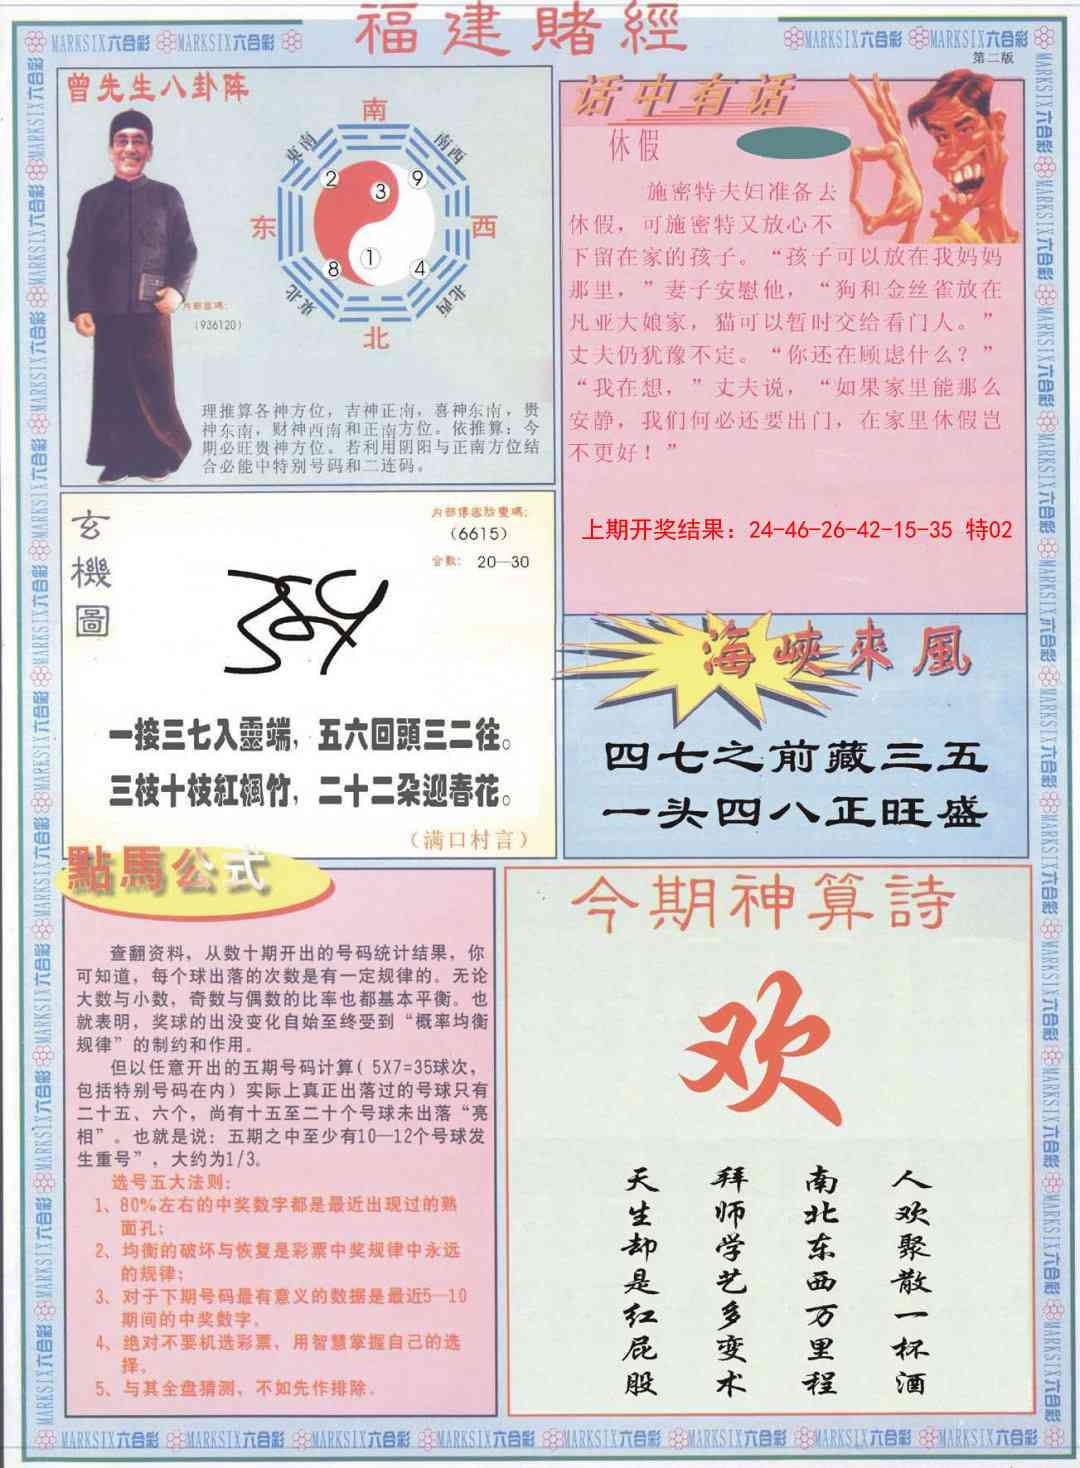 福建賭經
MARKSIX六合彩 MARKSIX六合彩 MARKSIX六合彩 MARKSIX六合彩
第二版
曾先生八卦阵
南
東南
南西
2
3
9
东
西
1
8
4
東北
北西
北
内部密碼:
(936120)
理推算各神方位，吉神正南，喜神东南，贵
神东南，财神西南和正南方位。依推算：今
期必旺贵神方位。若利用阴阳与正南方位结
合必能中特别号码和二连码。
话中有话
休假
施密特夫妇准备去
休假，可施密特又放心不
下留在家的孩子。“孩子可以放在我妈妈
那里，”妻子安慰他，“狗和金丝雀放在
凡亚大娘家，猫可以暂时交给看门人。”
丈夫仍犹豫不定。“你还在顾虑什么？”
“我在想，”丈夫说，“如果家里能那么
安静，我们何必还要出门，在家里休假岂
不更好！”
上期开奖结果：24-46-26-42-15-35 特02
玄機圖
(6615)
合數: 20—30
一接三七入靈端，五六回頭三二往。
三枝十枝紅楓竹，二十二朵迎春花。
（满口村言）
海峽來風
四七之前藏三五
一头四八正旺盛
點馬公式
查翻资料，从数十期开出的号码统计结果，你
可知道，每个球出落的次数是有一定规律的。无论
大数与小数，奇数与偶数的比率也都基本平衡。也
就表明，奖球的出没变化自始至终受到“概率均衡
规律”的制约和作用。
但以任意开出的五期号码计算( 5X7=35球次，
包括特别号码在内）实际上真正出落过的号球只有
二十五、六个，尚有十五至二十个号球未出落“亮
相”。也就是说：五期之中至少有10—12个号球发
生重号”，大约为1/3。
选号五大法则：
1、80%左右的中奖数字都是最近出现过的熟
面孔；
2、均衡的破坏与恢复是彩票中奖规律中永远
的规律；
3、对于下期号码最有意义的数据是最近5—10
期间的中奖数字。
4、绝对不要机选彩票，用智慧掌握自己的选
择。
5、与其全盘猜测，不如先作排除。
今期神算詩
欢
人欢聚散一杯酒
南北东西万里程
拜师学艺多变术
天生却是红屁股
MARKSIX六合彩 MARKSIX六合彩 MARKSIX六合彩 MARKSIX六合彩 MARKSIX六合彩 MARKSIX六合彩 MARKSIX六合彩 MARKSIX六合彩